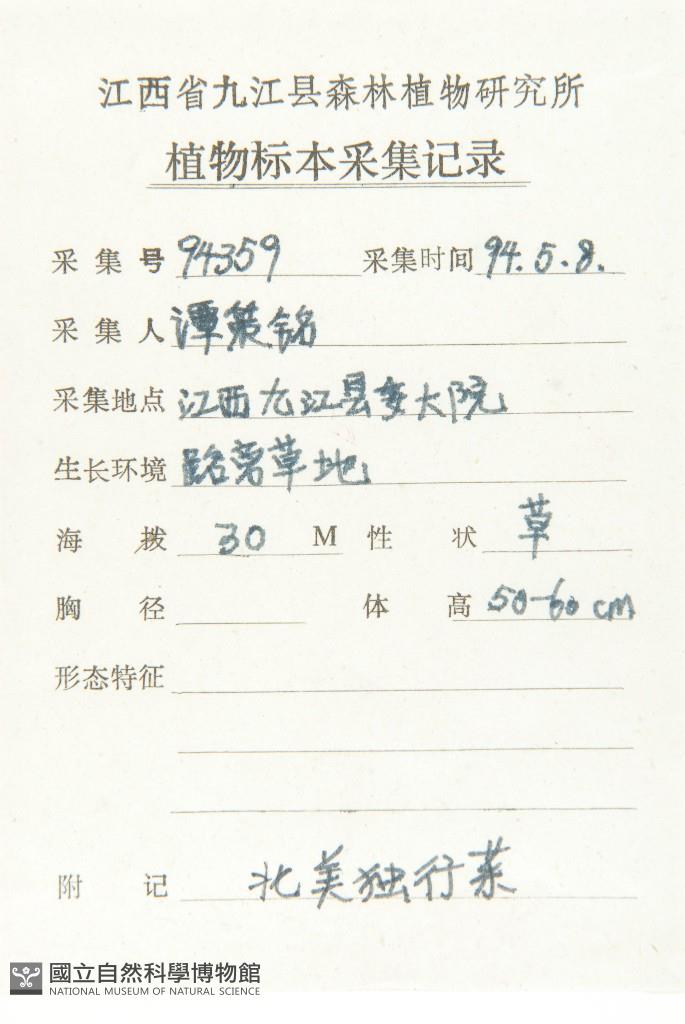 江西省九江县森林植物研究所
植物标本采集记录
采集号 94359 采集时间 94.5.8.
采集人 谭策铭
采集地点 江西九江县委大院
生长环境 路旁草地
海拨 30 M 性状 草
胸径 体高 50-60 cm
形态特征
附记 北美独行菜
國立自然科學博物館
NATIONAL MUSEUM OF NATURAL SCIENCE